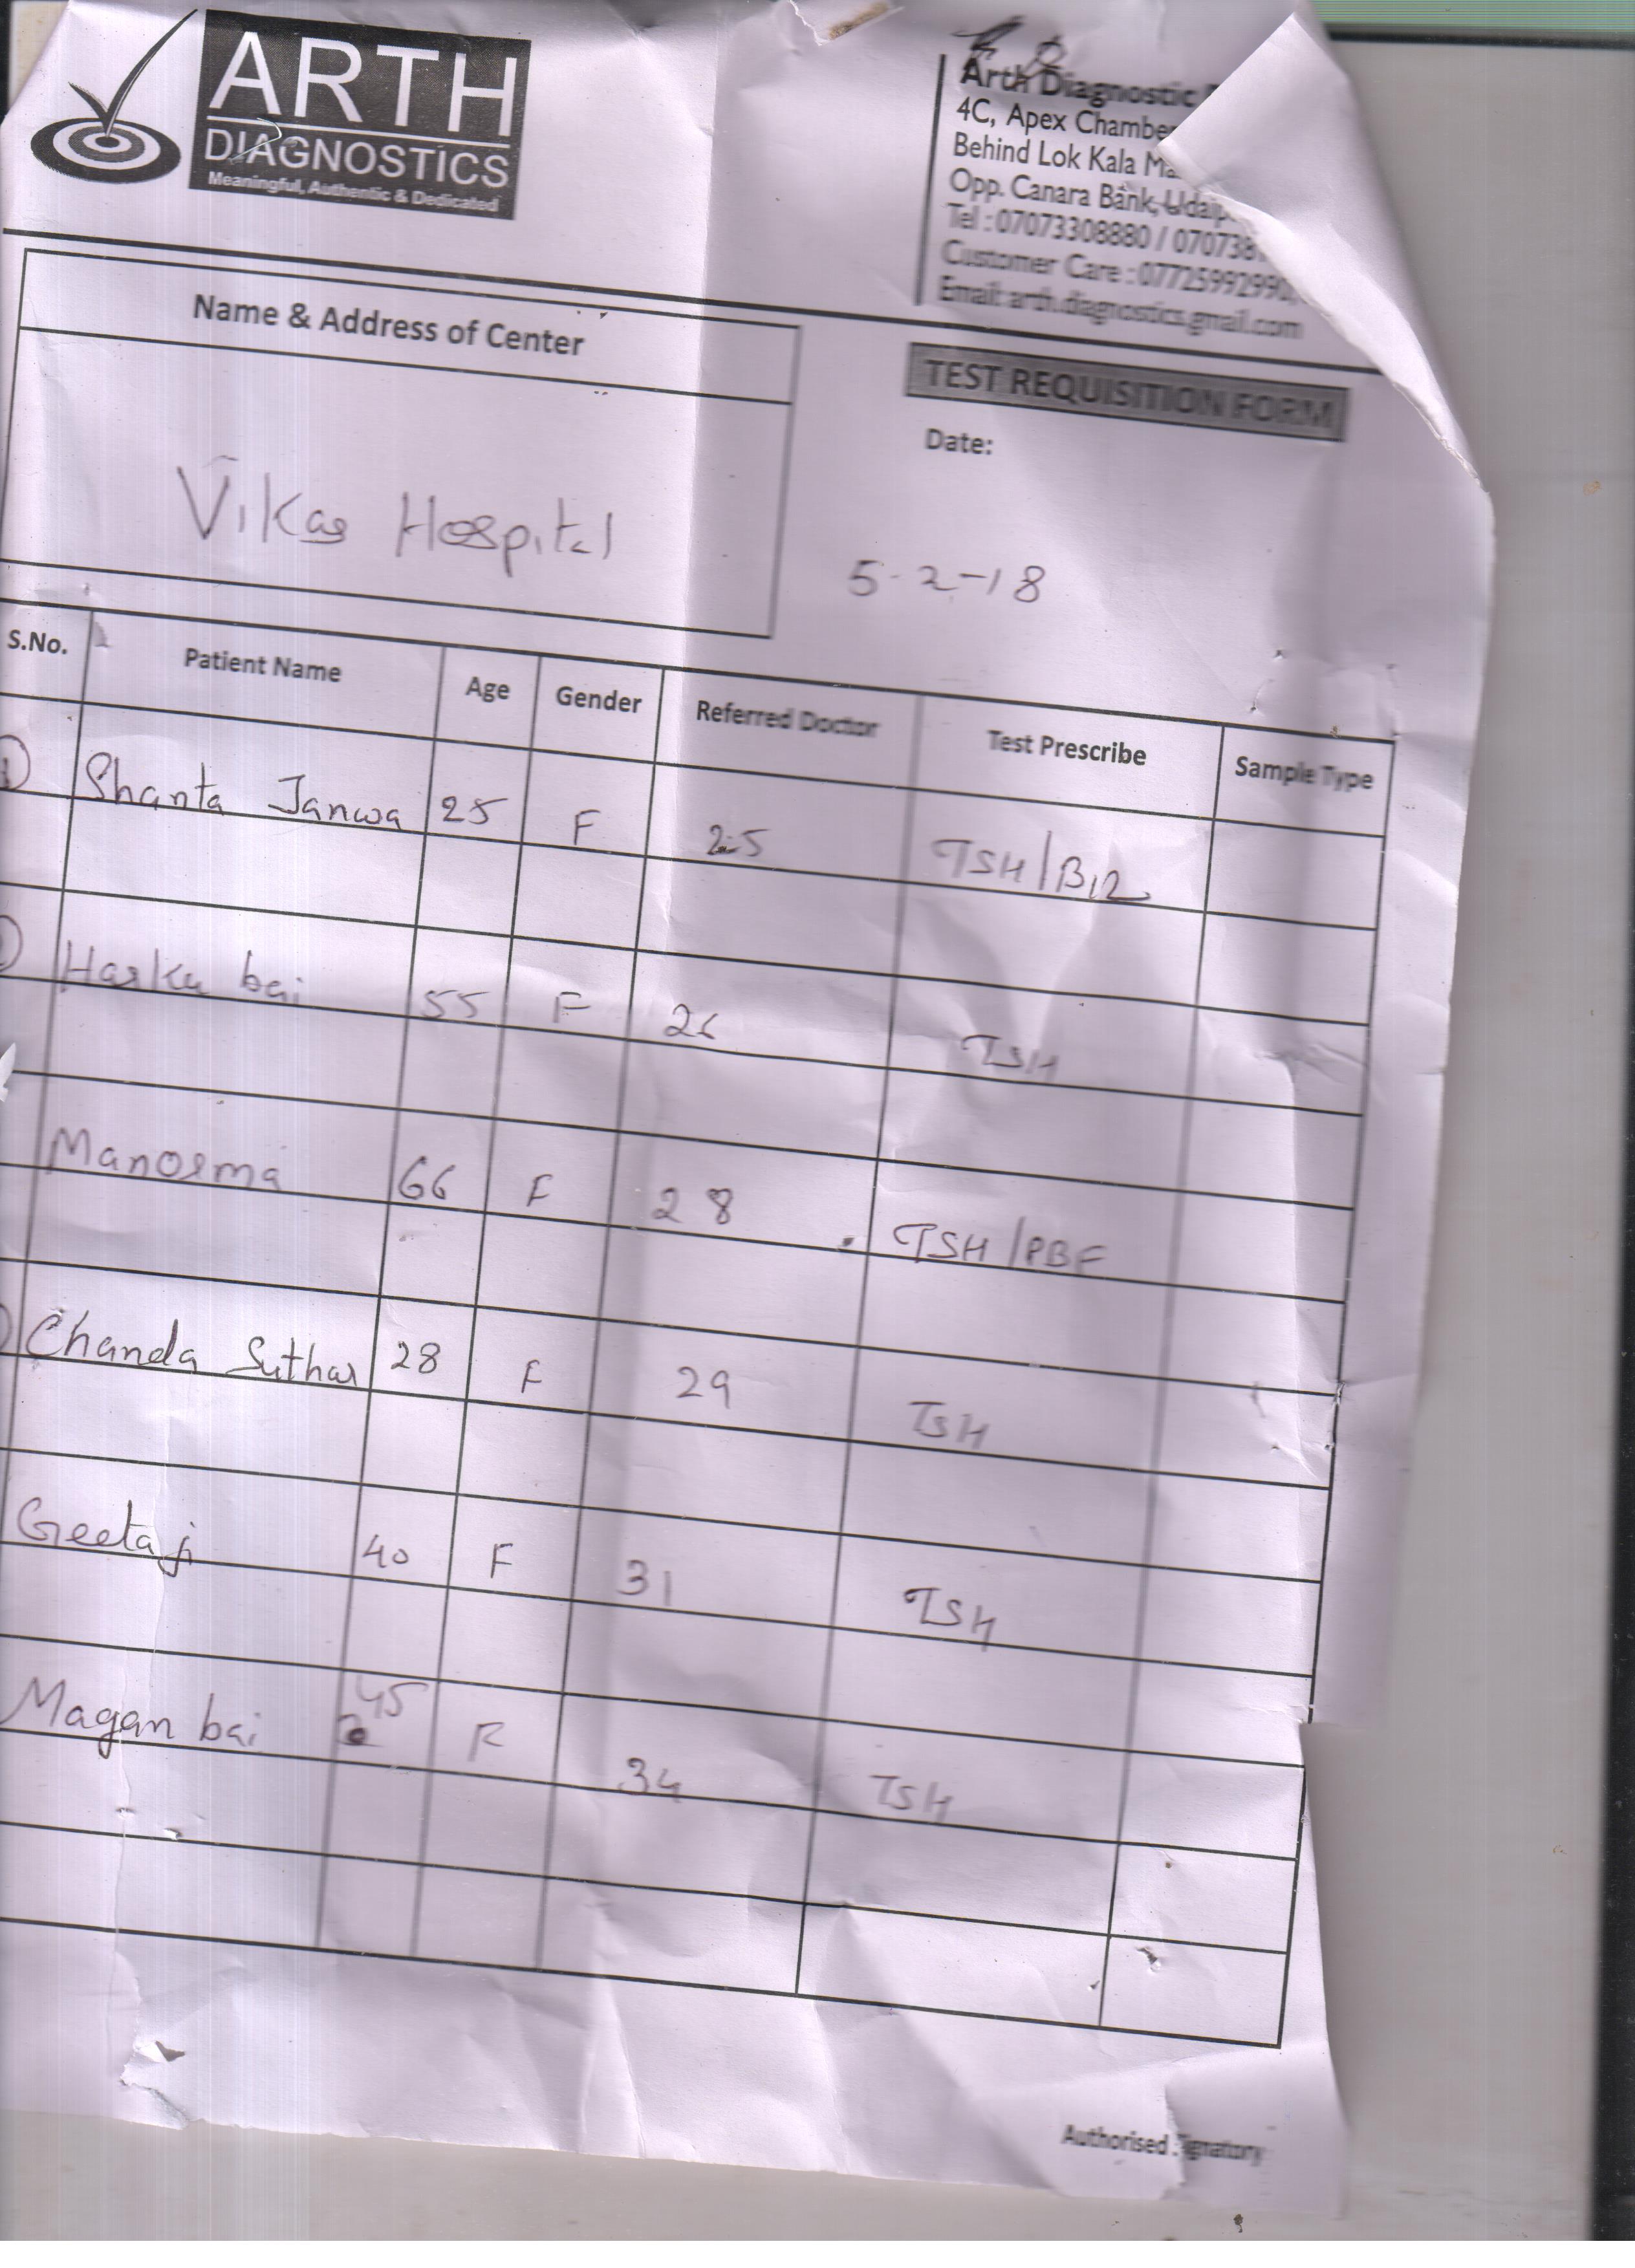 ARTH
DIAGNOSTICS
Meaningful, Authentic & Dedicated
Arth Diagnostic
4C, Apex Chamber
Behind Lok Kala Ma
Opp. Canara Bank, Udaip
Tel : 07073308880 / 070738
Customer Care : 07725992990,
Email: arth.diagnostics.gmail.com
Name & Address of Center
TEST REQUISITION FORM
Date:
Vikas Hospital
5-2-18
S.No. Patient Name Age Gender Referred Doctor Test Prescribe Sample Type
Shanta Janwa 25 F 25 TSH/B12
Harku bai 55 F 26 TSH
Manorma 66 F 28 TSH/PBF
Chanda Suthar 28 F 29 TSH
Geeta ji 40 F 31 TSH
Magan bai 45 F 34 TSH
Authorised Signatory